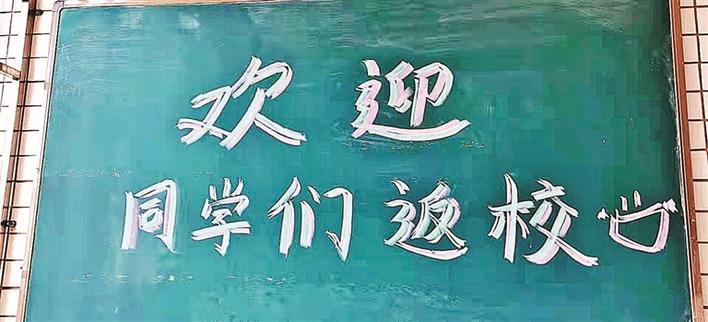 欢迎
同学们返校